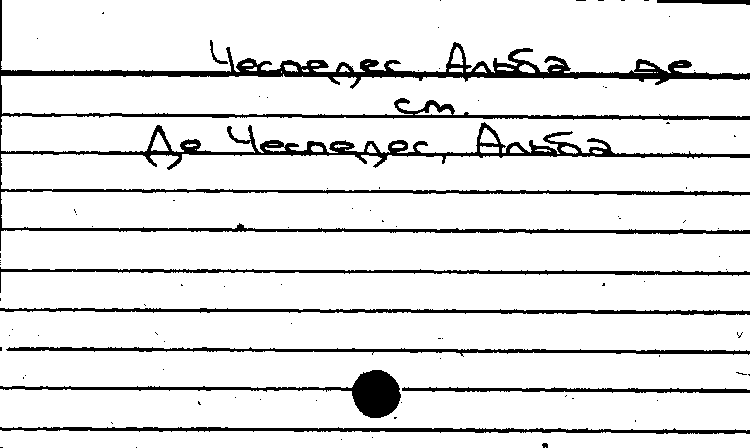 Чеспедес, Альба де
см.
Де Чеспедес, Альба